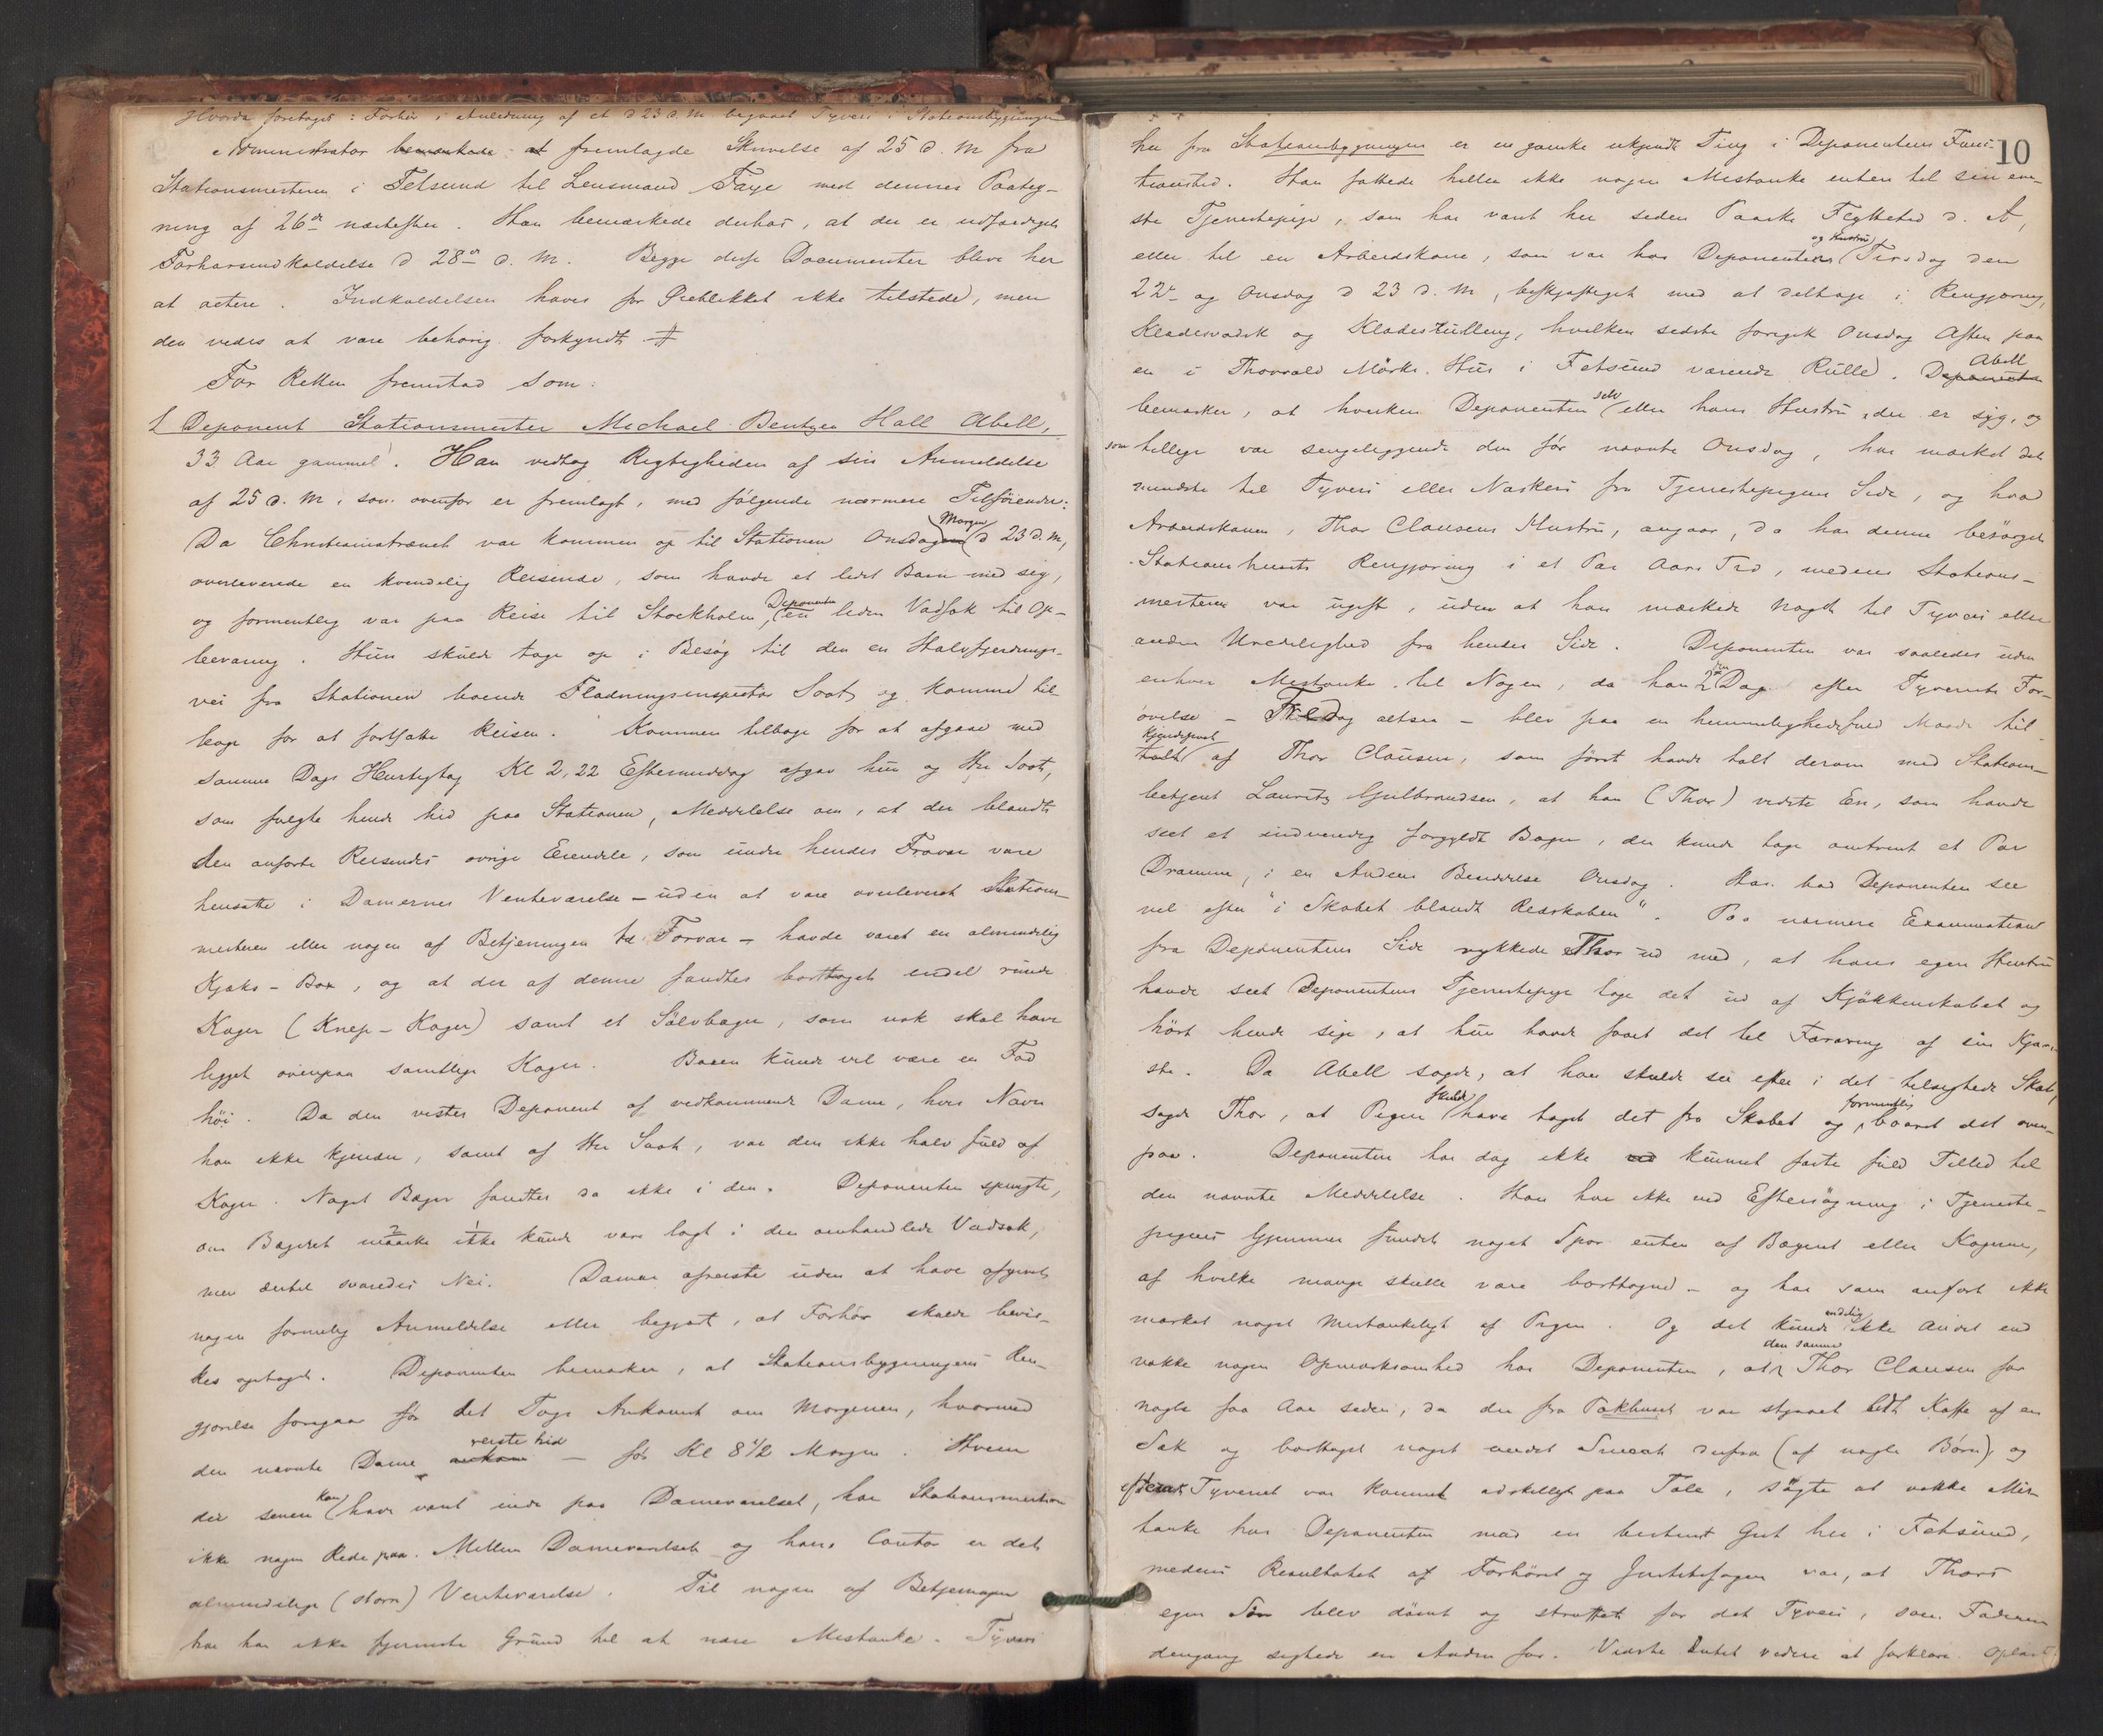 Hvorda foretoges: Forhør i Anledning af et d 23 d. M. begaaet Tyveri i Stationsbygningen
Administrator bemærkede at fremlagde Skrivelse af 25 d. M fra
Stationsmesteren i Fetsund til Lensmand Faye med dennes Paateg-
ning af 26de næstefter. Han bemærkede derhos, at der er udfærdiget
Forhørsindkaldelse d 28de d. M. Begge disse Documenter bleve her
at actere. Indkaldelsen haves for Øieblikket ikke tilstede, men
den vides at være behørig forkyndt #
For Retten fremstod som:
1 Deponent Stationsmester Michael Bentzen Hall Abell,
33 Aar gammel. Han vedtog Rigtigheden af sin Anmeldelse
af 25 d. M. som ovenfor er fremlagt, med følgende nærmere Tilføiender:
Da Christianiatrænet var kommen op til Stationen Onsdagen Morgen d 23 d. M,
overleverede en kvindelig Reisende, som havde et lidet Barn med sig,
og formentlig var paa Reise til Stockholm, Deponenten en liden Vadsæk til Op-
bevaring. Hun skulde tage op i Besøg til den en Halvfjerdings-
vei fra Stationen boende Flødningsinspektør Soot og komme til-
bage for at fortsætte Reisen. Kommen tilbage for at afgaae med
samme Dags Hurtigtog Kl 2,22 Eftermiddag afgav hun og Hr Soot,
som fulgte hende hid paa Stationen, Meddelelse om, at der blandt
den anførte Reisendes øvrige Eiendele, som under hendes Fravær vare
hensatte i Damernes Venteværelse - uden at være overleveret Stations-
mesteren eller nogen af Betjeningen til Forvar - havde været en almindelig
Kjæks-Box, og at der af denne fandtes borttaget endel runde
Kager (Knep-Kager) samt et Sølvbæger, som nok skal have
ligget ovenpaa samtlige Kager. Boxen kunde vel være en Fod
høi. Da den vistes Deponent af vedkommende Dame, hvis Navn
han ikke kjender, samt af Hr Soot, var den ikke halv fuld af
Kager. Noget Bæger fandtes da ikke i den. Deponenten spurgte,
om Bægeret maaske ikke kunde være lagt i den omhandlede Vadsæk,
men dertil svaredes Nei. Damen afreiste uden at have afgivet
nogen formelig Anmeldelse eller begjært, at Forhør skulde bevir-
kes optaget. Deponenten bemærker, at Stationsbygningens Ren-
gjørelse foregaar før det Togs Ankomst om Morgenen, hvormed
den nævnte Dame ankom reiste hid - før Kl 8 1/2 Morgen. Hvem
der senere kan have været inde paa Dameværelset, har Stationsmesteren
ikke nogen Rede paa. Mellem Dameværelset og hans Contor er det
almindelige (store) Venteværelse. Til nogen af Betjeningen
har han ikke fjerneste Grund til at nære Mistanke. Tyveri
10
her fra Stationsbygningen er en ganske ukjendt Ting i Deponentens Func-
tionstid. Han fattede heller ikke nogen Mistanke enten til sin ene-
ste Tjenestepige, som har været her siden Paaske Flyttetid d. A,
eller til en Arbeidskone, som var hos Deponenten og Hustru Tirsdag den
22de og Onsdag d 23 d. M, beskjæftiget med at deltage i Rengjøring,
Klædesvadsk og Klæderulling, hvilken sidste foregik Onsdag Aften paa
en i Thorvald Mørks Hus i Fetsund værende Rulle. Deponenten Abell
bemærker, at hverken Deponenten selv eller hans Hustru, der er syg, og
som tillige var sengeliggende den før nævnte Onsdag, har mærket det
mindste til Tyveri eller Naskeri fra Tjenestepigens Side, og hvad
Arbeidskonen, Thor Clausens Hustru, angaar, da har denne besørget
Stationshusets Rengjøring i et Par Aars Tid, medens Stations-
mesteren var ugift, uden at han mærkede Noget til Tyveri eller
anden Uredelighed fra hendes Side. Deponenten var saaledes uden
enhver Mistanke til Nogen, da han 2den Dag efter Tyveriets For-
øvelse - Fredag altsaa - blev paa en hemmelighedsfuld Maade til-
talt kjendegivet af Thor Clausen, som først havde talt derom med Stations-
betjent Laurits Gulbrandsen, at han (Thor) vidste En, som havde
seet et indvendig forgyldt Bæger, der kunde tage omtrent et Par
Dramme, i en Andens Besiddelse Onsdag. Han bad Deponenten see
vel efter "i Skabet blandt Redskaben". Paa nærmere Examination
fra Deponentens Side rykkede Thor ud med, at hans egen Hustru
havde seet Deponentens Tjenestepige tage det ud af Kjøkkenskabet og
hørt hende sige, at hun havde faaet det til Foræring af sin Kjære-
ste. Da Abell sagde, at han skulde see efter i det tilsigtede Skab,
sagde Thor, at Pigen skulde have taget det fra Skabet og formentlig baaret det oven-
paa. Deponenten har dog ikke kunnet fæste fuld Tillid til
den nævnte Meddelelse. Han har ikke ved Eftersøgning i Tjeneste-
pigens Gjemmer fundet noget Spor enten af Bægeret eller Kagerne,
af hvilke mange skulle være borttagne - og har som anført ikke
mærket noget Mistænkeligt af Pigen. Og det kunde endelig ikke Andet end
vække nogen Opmærksomhed hos Deponenten, at den samme Thor Clausen for
nogle faa Aar siden, da der fra Pakhuset var stjaalet lidt Kaffe af en
Sæk og borttaget noget andet Smaat derfra (af nogle Børn), og
efterat Tyveriet var kommet adskilligt paa Tale, søgte at vække Mis-
tanke hos Deponenten mod en bestemt Gut her i Fetsund,
medens Resultatet af Forhøret og Justitssagen var, at Thors
egen Søn blev dømt og straffet for det Tyveri, som Faderen
dengang sigtede en Anden for. Vidste Intet videre at forklare. Oplæst